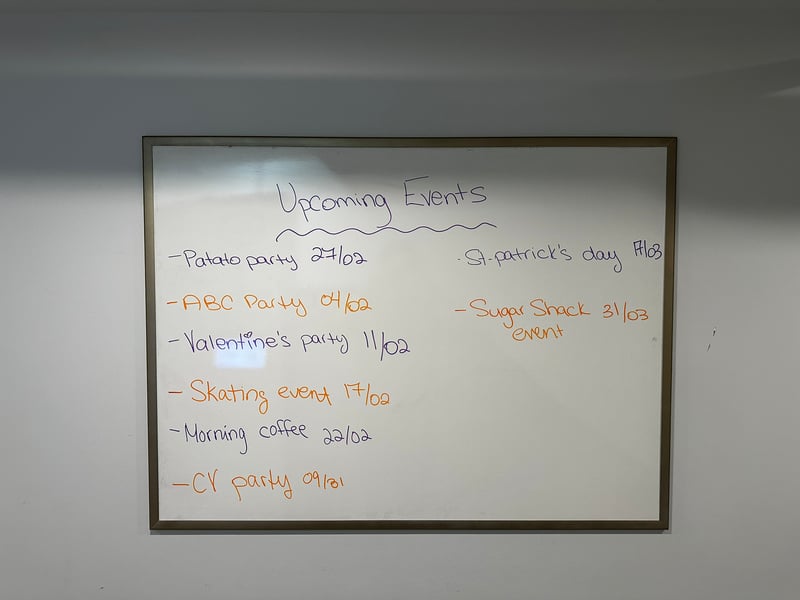 Upcoming Events
- Patato party 27/02
- ABC Party 04/02
- Valentine's party 11/02
- Skating event 17/02
- Morning coffee 22/02
- CV party
- St-patrick's day 17/03
- Sugar Shack 31/03
event